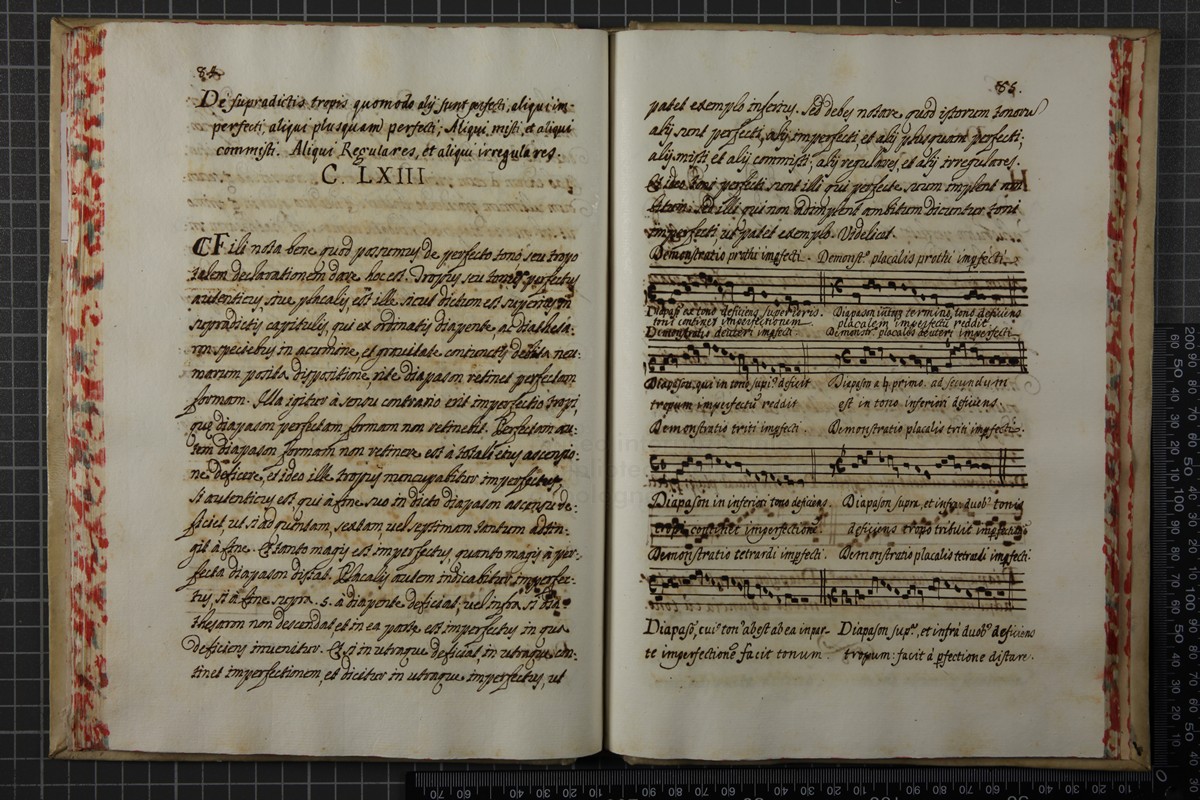 84
De supradictis tropis quomodo alij sunt perfecti, aliqui im-
perfecti, aliqui plusquam perfecti; Aliqui misti, et aliqui
commisti. Aliqui Regulares, et aliqui irregulares.
C. LXIII
Fili nota bene quod possumus de perfecto tono seu tropo
talem declarationem dare hoc est. Tropus seu tonus perfectus
autenticus siue placalis, est ille sicut dictum est superius in
supradictis capitulis, qui ex ordinatis diapente ac diathesa-
ron speciebus in acumine, et grauitate coniunctis debita neu-
marum posita dispositione, rite diapason retinet perfectam
formam. Illa igitur à sensu contrario erit imperfectio tropi,
quę diapason perfectam formam non retinebit. Perfectam au-
tem diapason formam non retinere est à totali eius ascensio-
ne deficere, et ideo ille tropus nuncupabitur imperfectus,
si autenticus est, qui à fine suo in dicto diapason ascensu de-
ficiet ut s. ad quintam, sextam, uel septimam tantum attin-
git à fine. Et tanto magis est imperfectus quanto magis à per-
fecta diapason distat. Placalis autem indicabitur imperfec-
tus, si à fine supra .5. à diapente deficiat, uel infra si dia-
thesaron non descendat, et in ea parte est imperfectus in qua
deficiens inuenitur. Et si in utraque deficiat, in utraque con-
tinet imperfectionem, et dicitur in utraque imperfectus, ut
85.
patet exemplo inferius. Sed debes notare, quod istorum tonorum
alij sunt perfecti, alij imperfecti et alij plusquam perfecti;
alij misti et alij commisti; alij regulares, et alij irregulares.
Et ideo toni perfecti sunt illi qui perfecte suum implent
Sed illi qui non adimplent ambitum dicuntur toni
imperfecti, ut patet exemplo. Videlicet
Demonstratio prothi impfecti. Demonst.º placalis prothi impfecti.
Diapasõ ex tono deficiens superioris. Diapason termino, tono deficiens
toni continet imperfectionem placalem imperfectũ reddit.
Demonstratio deuteri impfecti Demonstr.º placalis deuteri imperfecti
Diapason, qui in tono supi.º deficit Diapason a ♮ primo. ad secundum
tropum imperfectũ reddit est in tono inferiori deficiens.
Demonstratio triti impfecti. Demonstratio placalis triti impfecti.
Diapason in inferiori tono deficiens. Diapason supra, et infra duob.º tonis
tropi continet imperfectionẽ. deficiens tropo tribuit impfectũ
Demonstratio tetrardi impfecti. Demonstratio placalis tetradi impfecti.
Diapasõ, cui.º ton.º abest ab ea inpar- Diapason sup.ª, et infra duob.º deficiens
te imperfectionẽ facit tonum. tropum: facit à pfectione distare.